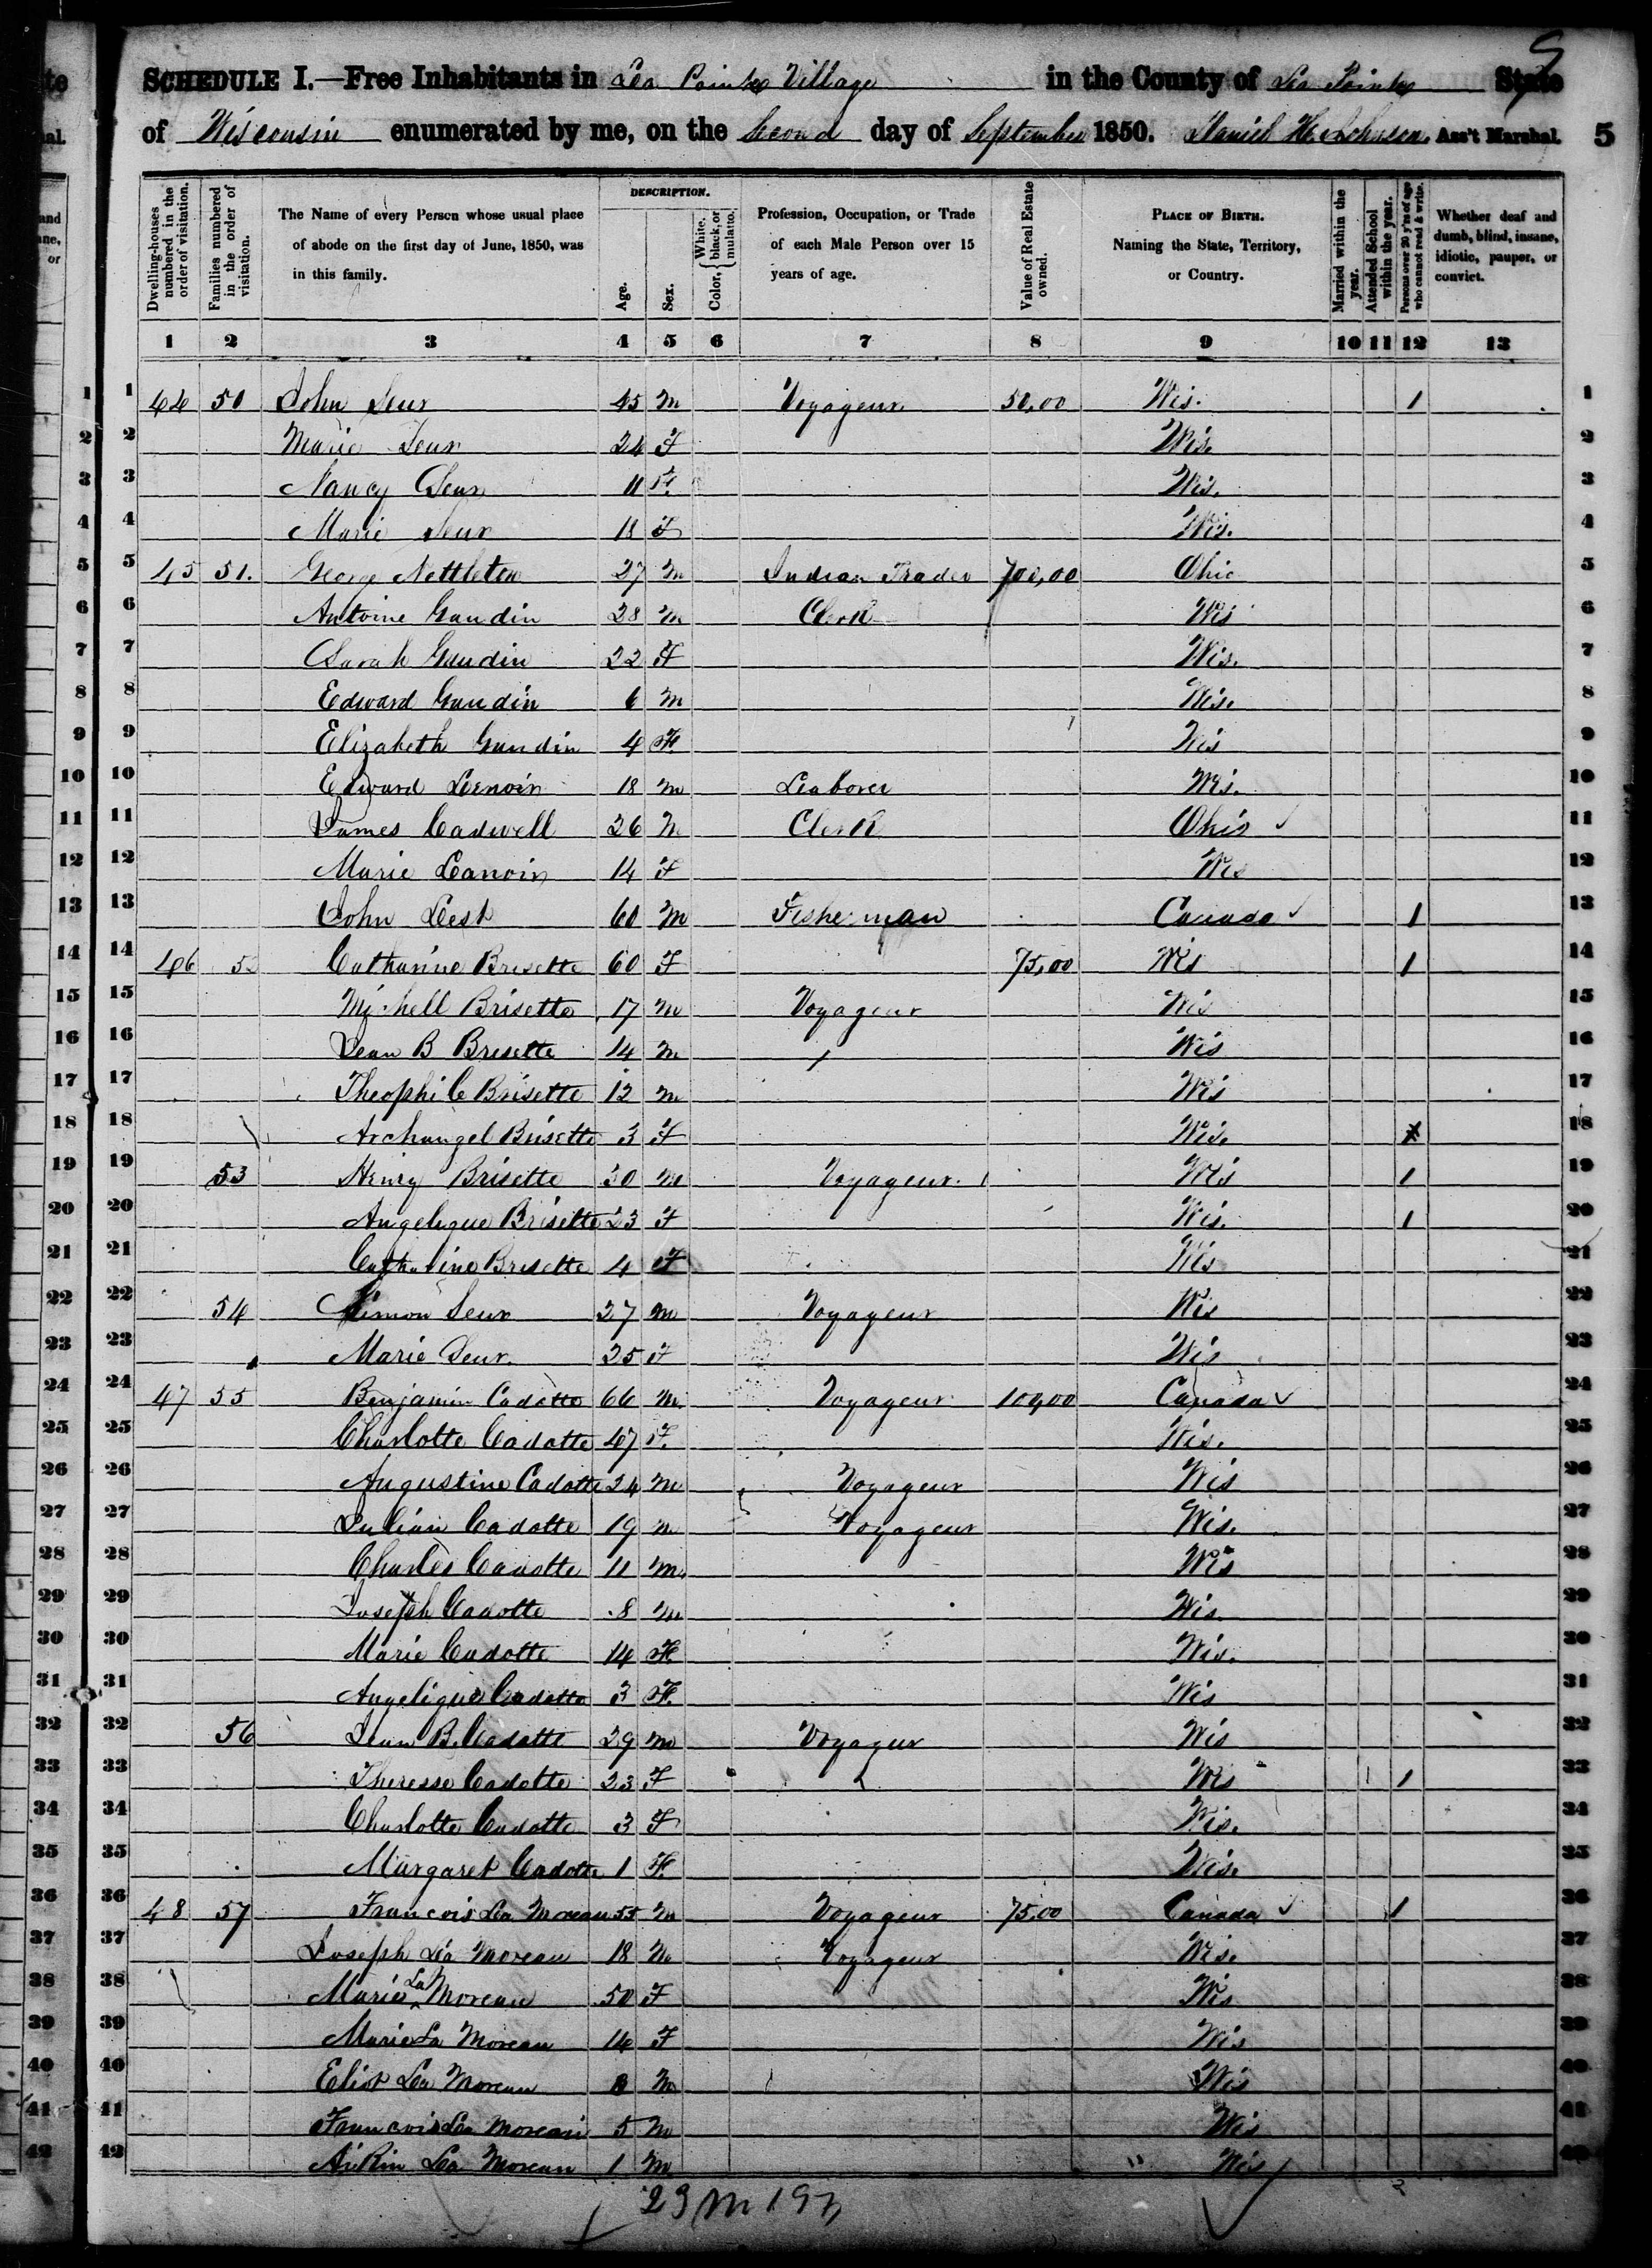 9
SCHEDULE I.—Free Inhabitants in La Pointe Village in the County of La Pointe State
of Wisconsin enumerated by me, on the Second day of September 1850. Daniel H. Ass't Marshal. 5
Dwelling-houses numbered in the order of visitation. Families numbered in the order of visitation. The Name of every Person whose usual place of abode on the first day of June, 1850, was in this family. DESCRIPTION. Age. Sex. Color, { White, black, or mulatto. Profession, Occupation, or Trade of each Male Person over 15 years of age. Value of Real Estate owned. PLACE OF BIRTH. Naming the State, Territory, or Country. Married within the year. Attended School within the year. Persons over 20 y'rs of age who cannot read & write. Whether deaf and dumb, blind, insane, idiotic, pauper, or convict.
1 2 3 4 5 6 7 8 9 10 11 12 13
1 44 50 John Seur 45 M Voyageur 50,00 Wis. 1 1
2 Marie Seur 24 F Wis. 2
3 Nancy Seur 11 F. Wis. 3
4 Marie Seur 18 F Wis. 4
5 45 51. George Nettleton 27 M Indian Trader 700,00 Ohio 5
6 Antoine Gaudin 28 M Clerk Wis 6
7 Sarah Gaudin 22 F Wis. 7
8 Edward Gaudin 6 M Wis. 8
9 Elizabeth Gaudin 4 F. Wis 9
10 Edward Lenoir 18 M Laborer Wis. 10
11 James Cadwell 26 M Clerk Ohio ✓ 11
12 Marie Lanoir 14 F Wis 12
13 John 60 M Fisherman Canada ✓ 1 13
14 46 52 Catharine Brisette 60 F 75,00 Wis 1 14
15 Michell Brisette 17 M Voyageur Wis 15
16 Jean B Brisette 14 M Wis 16
17 Theophile Brisette 12 M Wis 17
18 Archangel Brisette 3 F Wis. 18
19 53 Henry Brisette 30 M Voyageur. Wis 1 19
20 Angelique Brisette 23 F Wis. 1 20
21 Catharine Brisette 4 F Wis 21
22 54 Simon Seur 27 M Voyageur Wis 22
23 Marie Seur. 25 F Wis 23
24 47 55 Benjamin Cadotte 66 M. Voyageur 100,00 Canada ✓ 24
25 Charlotte Cadotte 47 F. Wis. 25
26 Augustine Cadotte 24 M Voyageur Wis 26
27 Julian Cadotte 19 M Voyageur Wis. 27
28 Charles Cadotte 11 M. Wis 28
29 Joseph Cadotte 8 M Wis. 29
30 Marie Cadotte 14 F. Wis. 30
31 Angelique Cadotte 3 F. Wis 31
32 56 Jean B. Cadotte 29 M Voyageur Wis 32
33 Theresse Cadotte 23 F Wis 1 33
34 Charlotte Cadotte 3 F Wis. 34
35 Margaret Cadotte 1 F. Wis. 35
36 48 57 Francois La Moreau 55 M Voyageur 75,00 Canada ✓ 1 36
37 Joseph La Moreau 18 M Voyageur Wis. 37
38 Marie La Moreau 50 F Wis 38
39 Marie La Moreau 14 F Wis 39
40 Eliot La Moreau M Wis 40
41 Francois La Moreau 5 M Wis 41
42 La Moreau 1 M " Wis 42
23 M 19